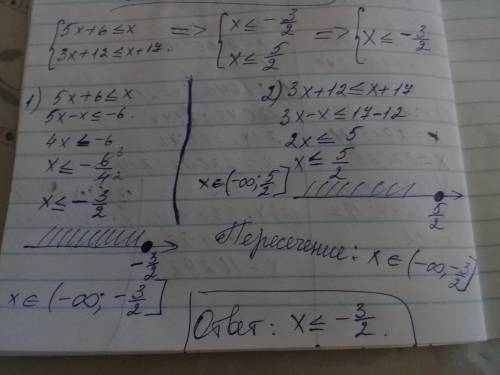 {5x+6≤x => {x≤-3/2 => {x≤-3/2
{3x+12≤x+17. {x≤5/2
1) 5x+6≤x
5x-x≤-6.
4x≤-6
x≤-6³/4₂
x≤-3/2.
-3/2
x∈(-∞;-3/2]
2) 3x+12≤x+17
3x-x≤17-12
2x≤5
x≤5/2
x∈(-∞;5/2]
5/2
Пересечение: x∈(-∞;-3/2]
Ответ: x≤-3/2.